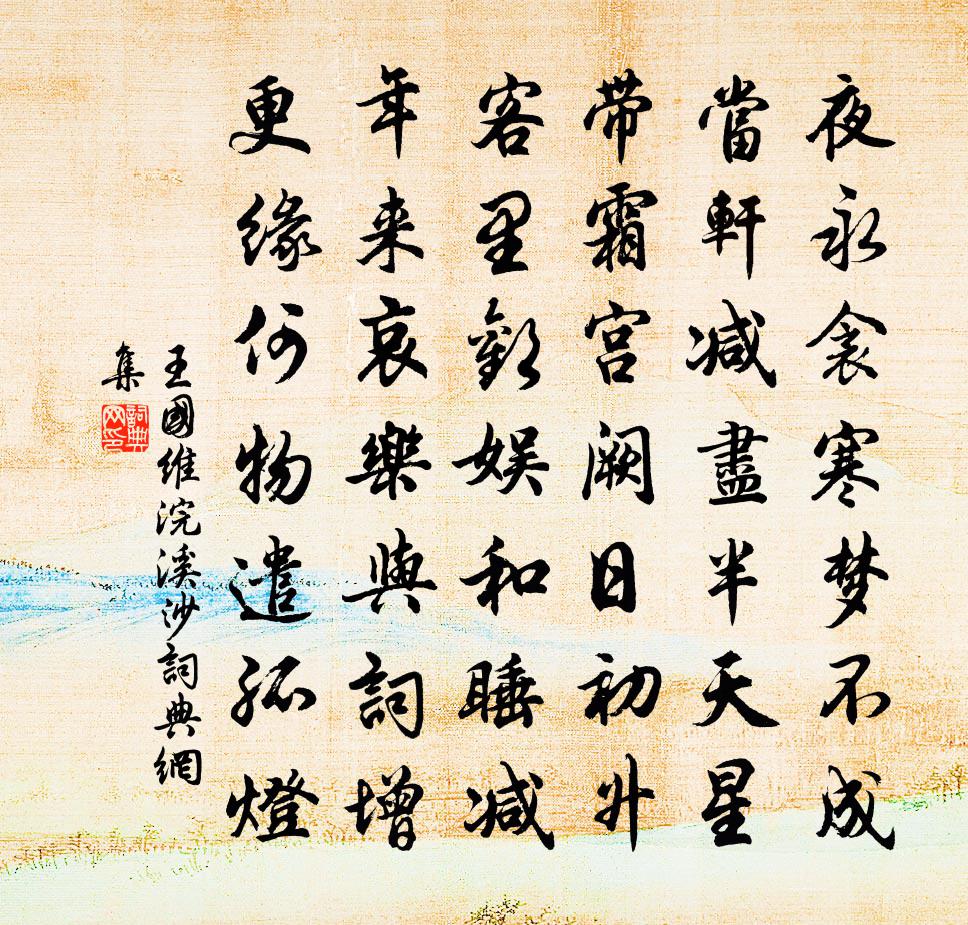 夜永衾寒梦不成
當軒减盡半天星
带霜宫闕日初升
客里歡娱和睡减
年来哀樂與詞增
更缘何物遣孤燈
王國維浣溪沙詞典網
集
詞典
网印